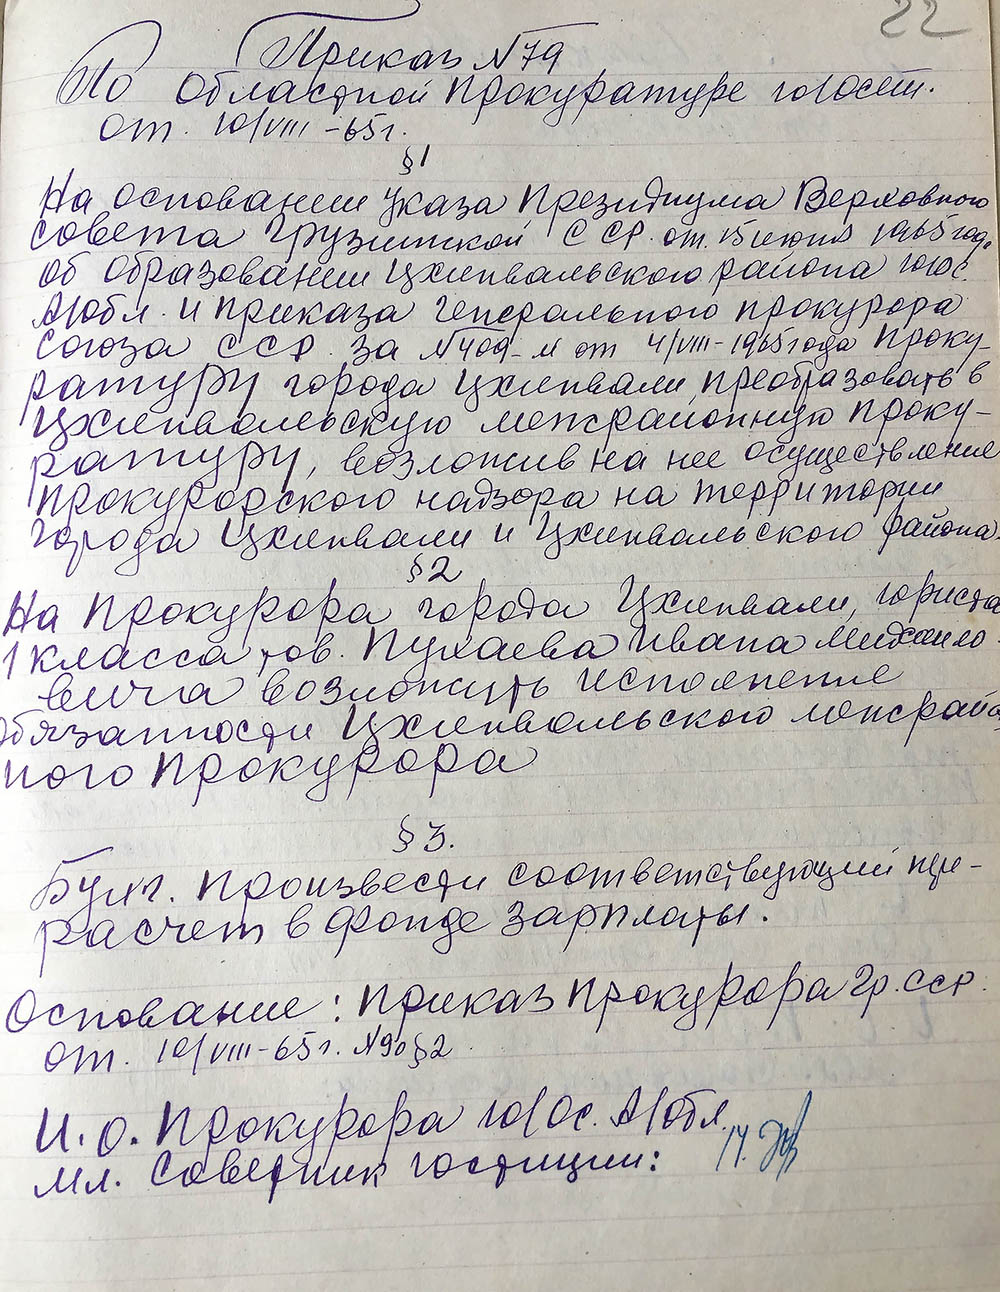 22
Приказ №79
По Областной Прокуратуре Ю/Осет.
от. 10/VIII-65г.
§1
На основании Указа Президиума Верховного
Совета Грузинской ССР. от. 15 июня 1965 года
об образовании Цхинвальского района Ю/Ос
А/обл. и приказа Генерального прокурора
Союза ССР. за №409-л от 4/VIII-1965 года Проку-
ратуру города Цхинвали, преобразовать в
Цхинвальскую межрайонную проку-
ратуру, возложив на нее осуществление
прокурорского надзора на территории
города Цхинвали и Цхинвальского района.
§2
На Прокурора города Цхинвали, юриста
1 класса тов. Пухаева Ивана Михайло
вича возложить исполнение
обязанности Цхинвальского межрайон
ного Прокурора
§3.
Бухг. произвести соответствующий пере-
расчет в фонде зарплаты.
Основание: приказ Прокурора Гр.ССР.
от. 10/VIII-65г. №90 §2
И.о. Прокурора Ю/Ос. А/обл.
мл. Советник юстиции: